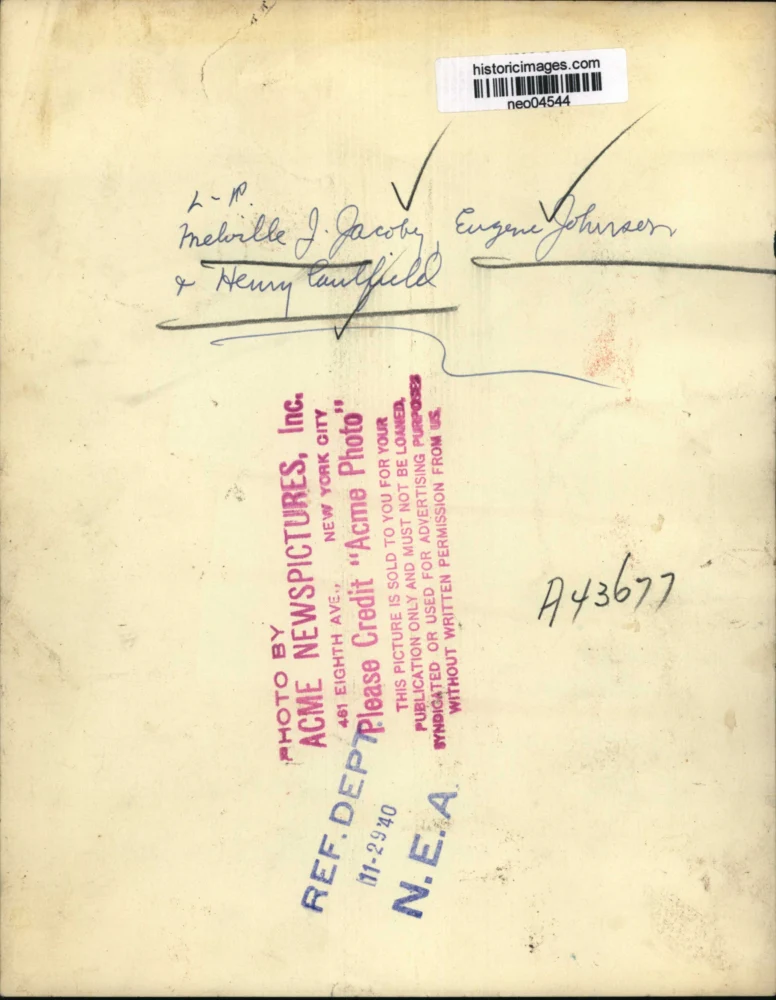 historicimages.com
neo04544
L-R.
Melville J. Jacoby, Eugene Johnsen
& Henry Caulfield
PHOTO BY
ACME NEWSPICTURES, Inc.
461 EIGHTH AVE., NEW YORK CITY
Please Credit "Acme Photo"
THIS PICTURE IS SOLD TO YOU FOR YOUR
PUBLICATION ONLY AND MUST NOT BE LOANED,
SYNDICATED OR USED FOR ADVERTISING PURPOSES
WITHOUT WRITTEN PERMISSION FROM US.
A43677
REF. DEPT.
11-29 40
N. E. A.